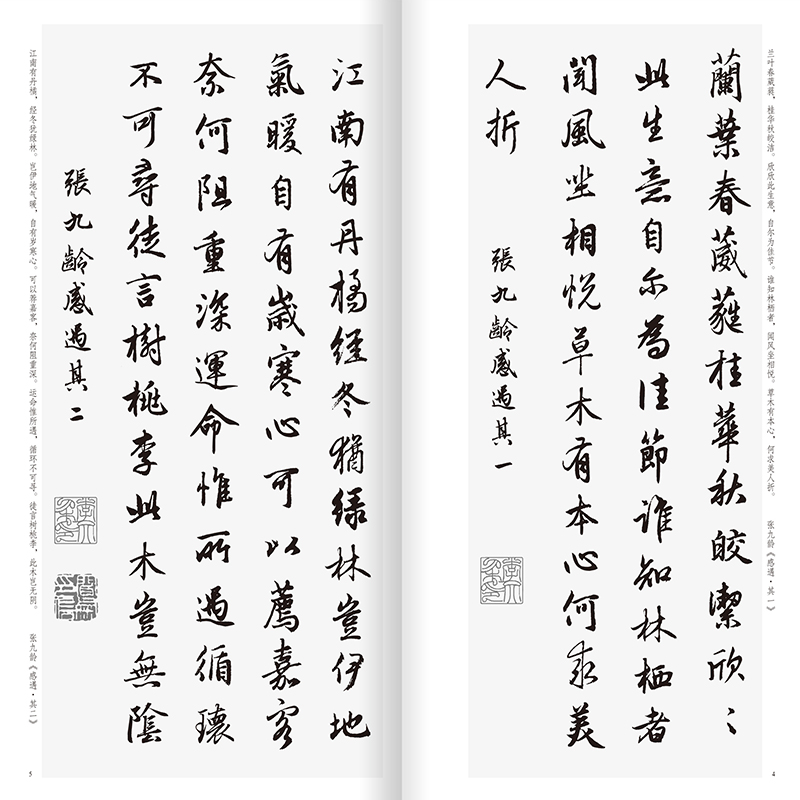 兰叶春葳蕤，桂华秋皎洁。欣欣此生意，自尔为佳节。谁知林栖者，闻风坐相悦。草木有本心，何求美人折。 张九龄《感遇·其一》
蘭葉春葳蕤桂華秋皎潔欣〻
此生意自尔為佳節誰知林栖者
聞風坐相悅草木有本心何求美
人折
張九齡感遇其一
4
江南有丹橘經冬猶綠林豈伊地
氣暖自有歲寒心可以薦嘉客
奈何阻重深運命惟所遇循環
不可尋徒言樹桃李此木豈無陰
張九齡感遇其二
江南有丹橘，经冬犹绿林。岂伊地气暖，自有岁寒心。可以荐嘉客，奈何阻重深。运命惟所遇，循环不可寻。徒言树桃李，此木岂无阴。 张九龄《感遇·其二》
5